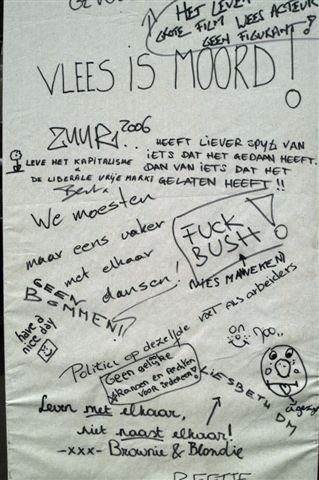 HET LEVEN
GROTE FILM WEES ACTEUR
GEEN FIGURANT!
VLEES IS MOORD!
ZUUR 2006
... HEEFT LIEVER SPYT VAN
IETS DAT HET GEDAAN HEEFT.
DAN VAN IETS DAT HET
GELATEN HEEFT!!
LEVE HET KAPITALISME
&
DE LIBERALE VRIJE MARKT
We moesten
maar eens vaker
met elkaar
dansen!
FUCK
BUSH!
GEEN
BOMMEN!!
have a
nice day
Politici op dezelfde voet als arbeiders
Geen gelijke
kansen en rechten
voor iedereen!
LIESBETH
Leven met elkaar,
niet naast elkaar!
-xxx- Brownie & Blondie